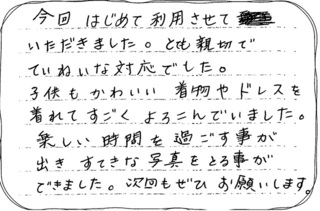 今回 はじめて利用させて
いただきました。とても親切で
ていねいな対応でした。
子供も かわいい 着物や ドレスを
着れて すごく よろこんでいました。
楽しい 時間を 過ごす事が
出き すてきな 写真を とる事が
できました。次回も ぜひ お願いします。